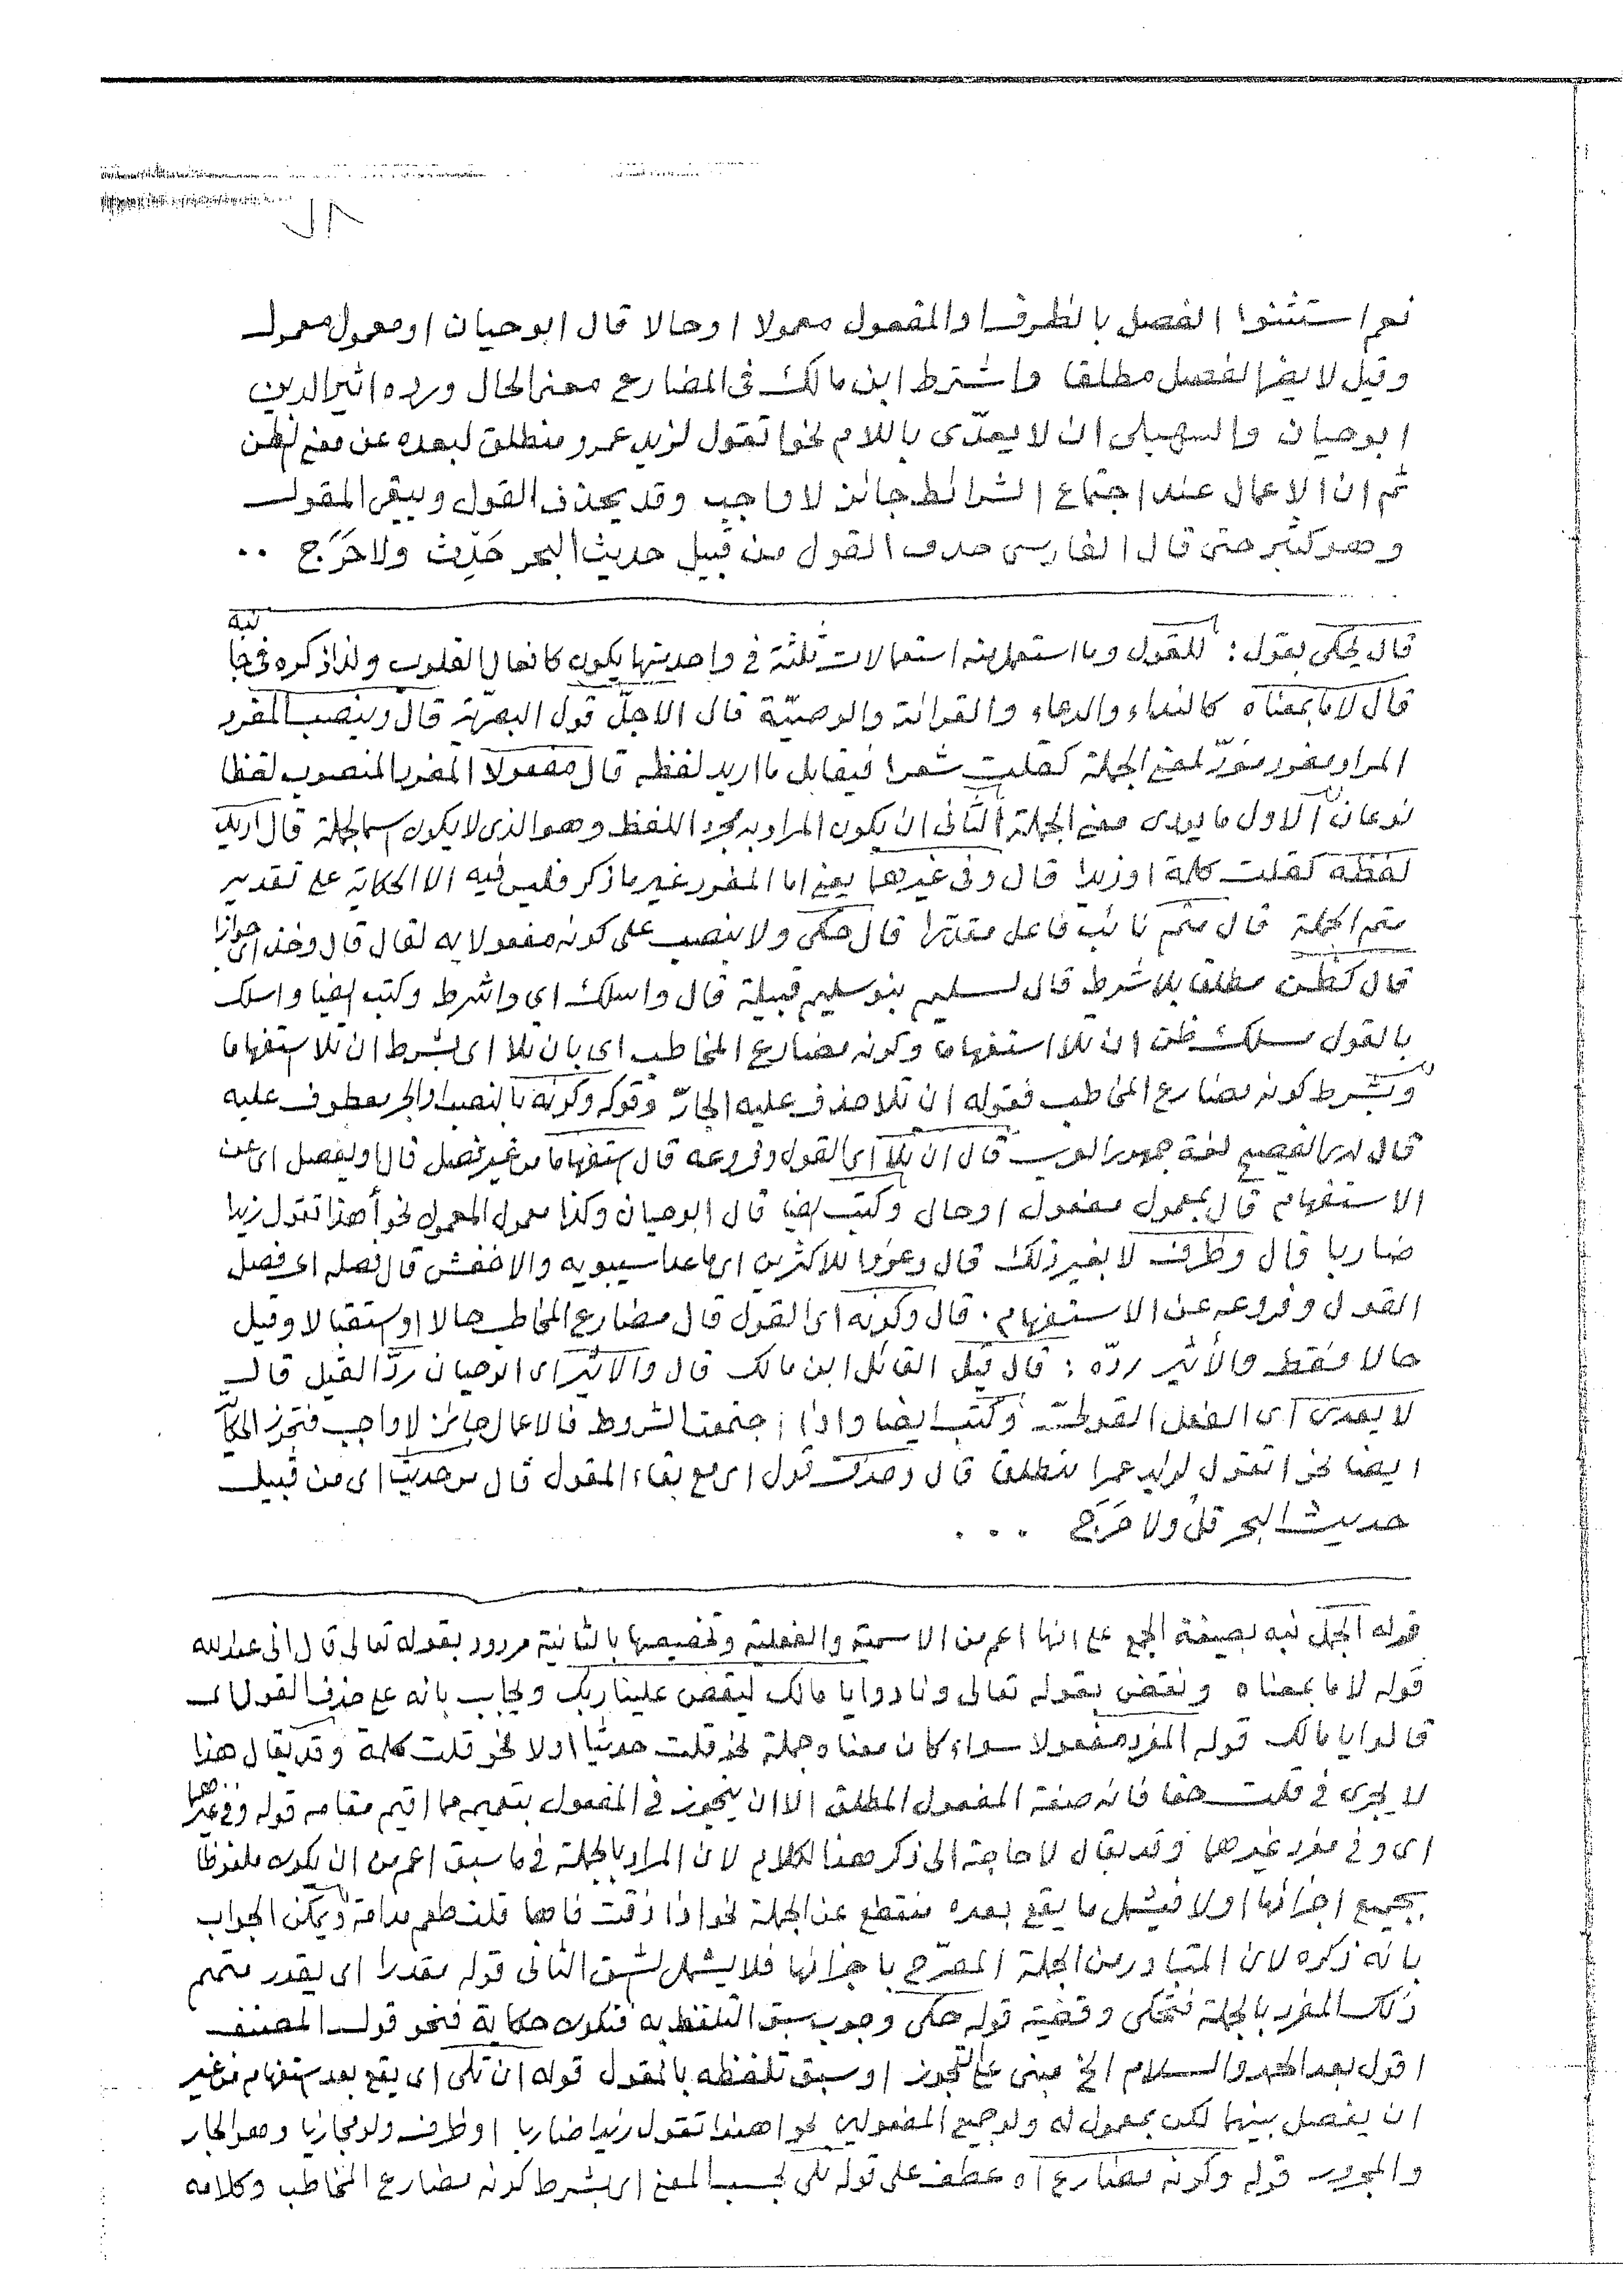 نعم استثنوا الفصل بالظرف او المفعول معمولا او حالا قال ابوحيان او معمول معمول
وقيل لا يضر الفصل مطلقا واشترط ابن مالك فى المضارع معنى الحال ورده اثير الدين
ابوحيان والسهيلى ان لا يعدّى باللام نحو اتقول لزيد عمرو منطلق لبعده عن معنى الظن
ثم ان الاعمال عند اجتماع الشرائط جائز لا واجب وقد يحذف القول ويبقى المقول
وهو كثير حتى قال الفارسى حذف القول من قبيل حديث البحر حَدِّث ولا حَرَج ..
قال يحكى بقول : للقول وما استعمل منه استعمالات ثلثة فى واحد منها يكون كافعال القلوب ولذا ذكره فى جانبه
قال لا ما بمعناه كالنداء والدعاء والقرائة والوصيّة قال الاجلّ قول البصريّة قال وينصب المفرد
المراد مفرد مؤدّ لمعنى الجملة كقلت شعرا فيقابل ما اريد لفظه قال مفعولا المفرد المنصوب لفظا
نوعان الاول ما يودى معنى الجملة الثانى ان يكون المراد به مجرد اللفظ وهو الذى لا يكون اسما لجملة قال اريد
لفظه كقلت كلمة او زيدا قال وفى غيرهما يعنى اما المفرد غير ما ذكر فليس فيه الا الحكاية على تقدير
متمم الجملة قال متمم نائب فاعل مقدرا قال حكى ولا ينصب على كونه مفعولا به لقال قال وخذ اى جوازا
قال كظن مطلقا بلا شرط قال لسليم بنو سليم قبيلة قال واسلك اى واشرط وكتب ايضا واسلك
بالقول مسلك ظن ان تلا استفهاما وكونه مضارع المخاطب اى بان تلا اى بشرط ان تلا استفهاما
وبشرط كونه مضارع المخاطب فقوله ان تلا حذف عليه الجارّ وقوله وكونه بالنصب او الجر معطوف عليه
قال لدى الفصيح لغة جمهور العرب قال ان تلا اى القول وفروعه قال استفهاما من غير فصل قال او بفصل اى عن
الاستفهام قال بمعمول مفعول او حال وكتب ايضا قال ابوحيان وكذا معمول المعمول نحو أهذا تقول زيدا
ضاربا قال وظرف لا بغير ذلك قال وعزوا للاكثرين اى ما عدا سيبويه والاخفش قال فصله اى فصل
القول وفروعه عن الاستفهام . قال وكونه اى القول قال مضارع المخاطب حالا او استقبالا وقيل
حالا فقط والأثير ردّه : قال قيل القائل ابن مالك قال والاثير اى ابوحيان ردّ القيل قال
لا يعدى اى الفعل القولىّ وكتب ايضا واذا اجتمعت الشروط فالاعمال جائز لا واجب فتجوز الحكاية
ايضا نحو اتقول لزيد عمرا منطلق قال وحذف قول اى مع بقاء المقول قال من حديث اى من قبيل
حديث البحر قل ولا حَرَج ...
قوله الجمل نبه بصيغة الجمع على انها اعم من الاسمية والفعلية وتخصيصها بالثانية مردود بقوله تعالى قال انى عبد الله
قوله لا ما بمعناه ونقض بقوله تعالى ونادوا يا مالك ليقض علينا ربك ويجاب بانه على حذف القول اى
قالوا يا مالك قوله المفرد مفعولا سواء كان معناه جملة نحو قلت حديثا او لا نحو قلت كلمة وقد يقال هذا
لا يجرى فى قلت حقا فانه صفة المفعول المطلق الا ان يتجوز فى المفعول بتعميمه مما اقيم مقامه قوله وفى غيرهما
اى وفى مفرد غيرهما وقد يقال لا حاجة الى ذكر هذا الكلام لان المراد بالجملة فى ما سبق اعم من ان يكون ملفوظا
بجميع اجزائها او لا فيشمل ما يقع بعده منقطع عن الجملة نحو اذا ذقت فاها قلت طعم مدامة ويمكن الجواب
بانه ذكره لان المتبادر من الجملة المصرّح باجزائها فلا يشمل الشق الثانى قوله مقدرا اى يقدر متمم
ذلك المفرد بالجملة فتحكى وقضية قوله حكى وجوب سبق التلفظ به فتكون حكاية فنحو قول المصنف
اقول بعد الحمد والسلام الخ مبنى على التجوز او سبق تلفظه بالمقول قوله ان تلى اى يقع بعد استفهام من غير
ان يفصل بينهما لكن بمعمول له ولو جميع المفعولين نحو اهندا تقول زيدا ضاربا او ظرف ولو مجازيا وهو الجار
والمجرور قوله وكونه مضارع اه عطف على قوله تلى بحسب المعنى اى بشرط كونه مضارع المخاطب وكلامه